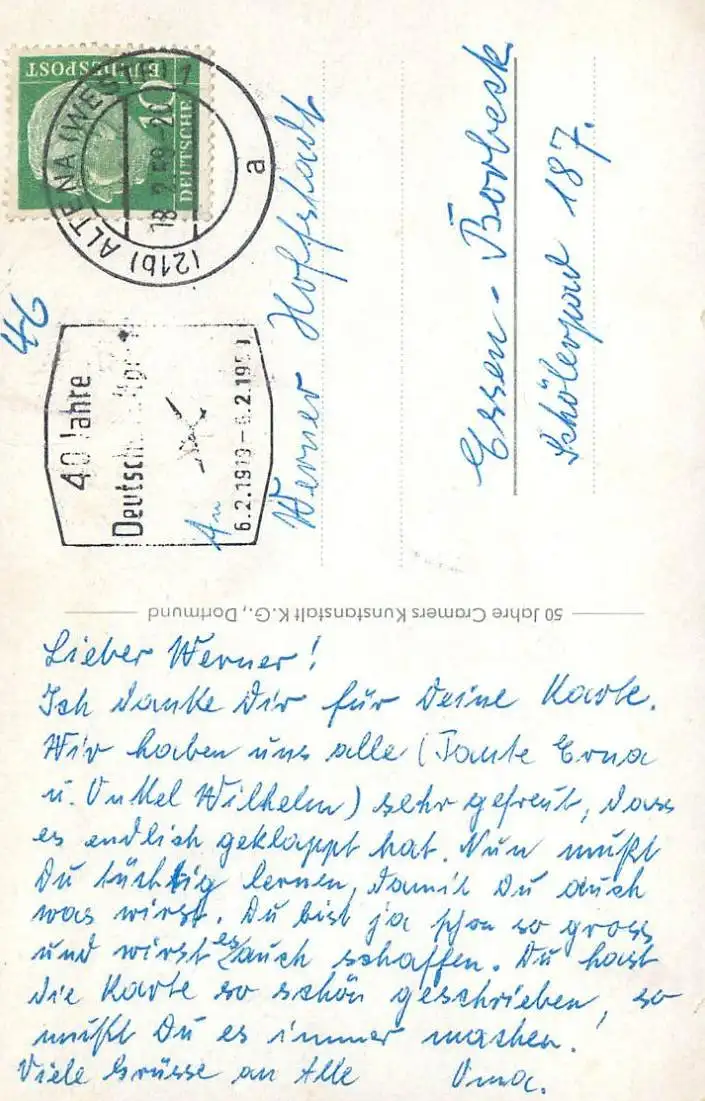 DEUTSCHE
BUNDESPOST
10
(21b) ALTENA (WESTF) 1
18.2.59-20
a
40 Jahre
Deutsche
6.2.1919-6.2.1959
46
An
Werner Hoffstadt
Essen-Borbeck
Schölerpad 187.
50 Jahre Cramers Kunstanstalt K.G., Dortmund
Lieber Werner!
Ich danke Dir für Deine Karte.
Wir haben uns alle (Tante Erna
u. Onkel Wilhelm) sehr gefreut, dass
es endlich geklappt hat. Nun mußt
Du tüchtig lernen, damit Du auch
was wirst. Du bist ja schon so gross
und wirst es auch schaffen. Du hast
die Karte so schön geschrieben, so
mußt Du es immer machen!
Viele Grüsse an Alle Oma.